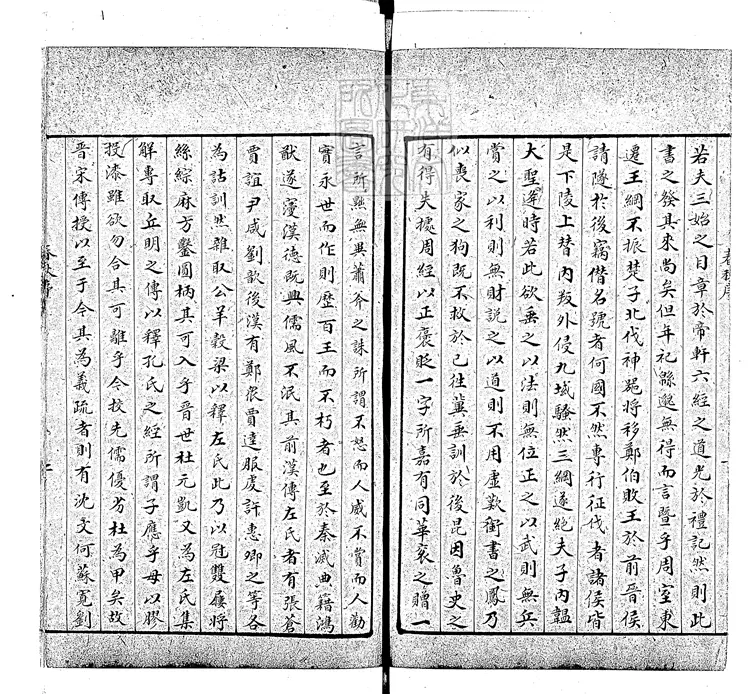 若夫三始之目章於帝軒六經之道光於禮記然則此
書之發其來尚矣但年祀緜邈無得而言暨乎周室東
遷王綱不振楚子北伐神器將移鄭伯敗王於前晉侯
請隧於後竊僭名號者何國不然專行征伐者諸侯皆
是下陵上替內叛外侵九域騷然三綱遂絕夫子內韞
大聖逢時若此欲垂之以法則無位正之以武則無兵
賞之以利則無財説之以道則不用虛歎銜書之鳳乃
似喪家之狗既不救於已往冀垂訓於後昆因魯史之
有得失據周經以正褒貶一字所嘉有同華衮之贈一
言所黜無異蕭斧之誅所謂不怒而人威不賞而人勸
實永世而作則歷百王而不朽者也至於秦滅典籍鴻
猷遂寢漢德既興儒風不泯其前漢傳左氏者有張蒼
賈誼尹咸劉歆後漢有鄭衆賈逵服虔許惠卿之等各
為詁訓然雜取公羊穀梁以釋左氏此乃以冠雙屨將
絲綜麻方鑿圓枘其可入乎晉世杜元凱又為左氏集
解專取丘明之傳以釋孔氏之經所謂子應乎母以膠
投漆雖欲勿合其可離乎今挍先儒優劣杜為甲矣故
晉宋傳授以至于今其為義疏者則有沈文何蘇寬劉